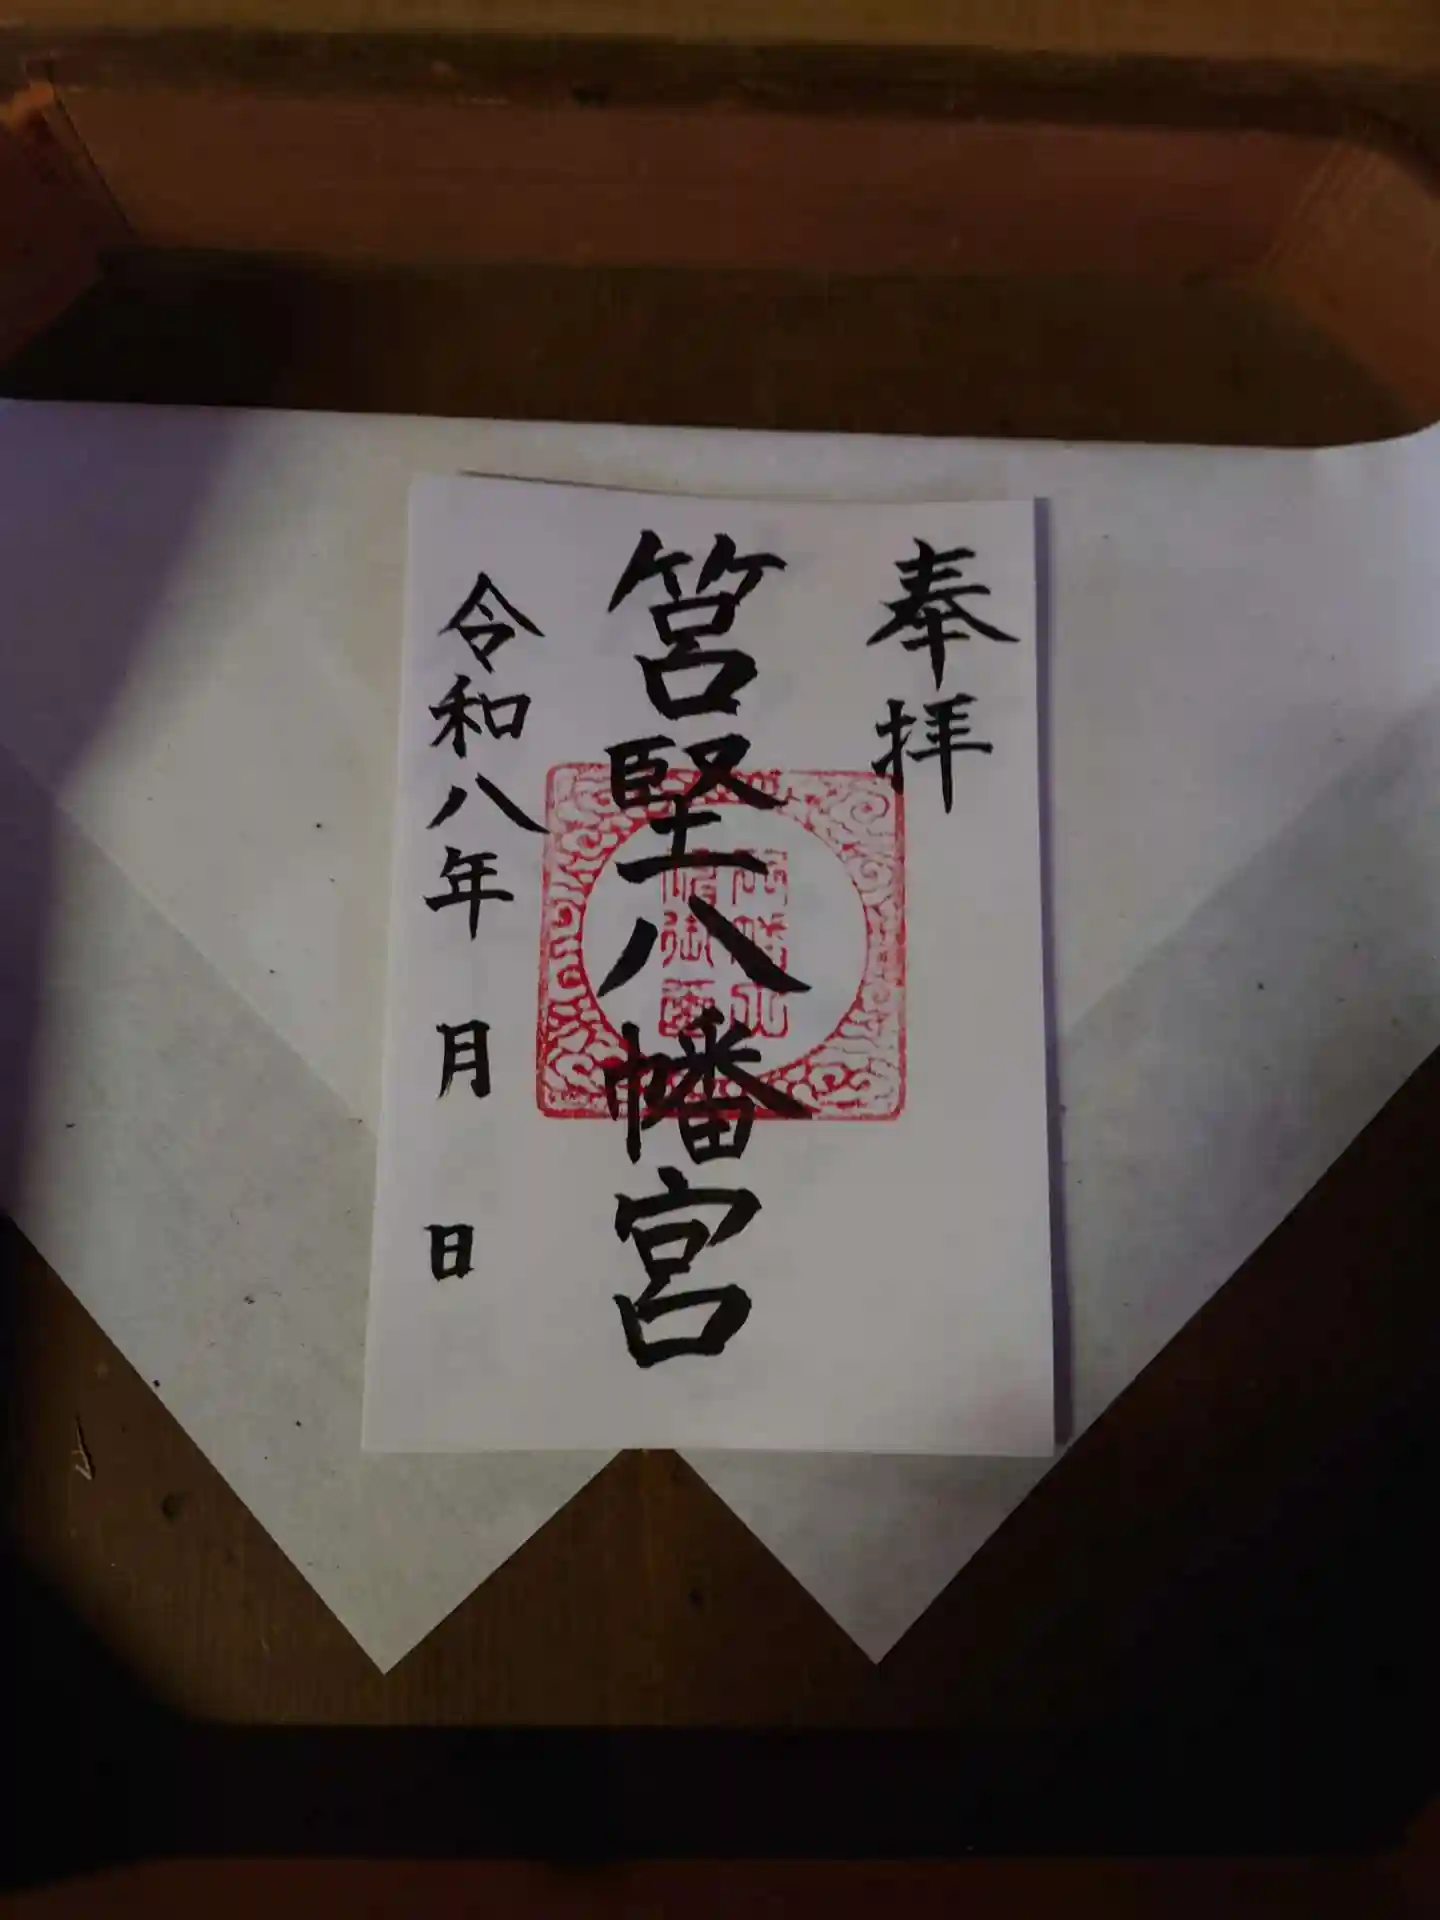 奉拝
筥堅八幡宮
令和八年 月 日